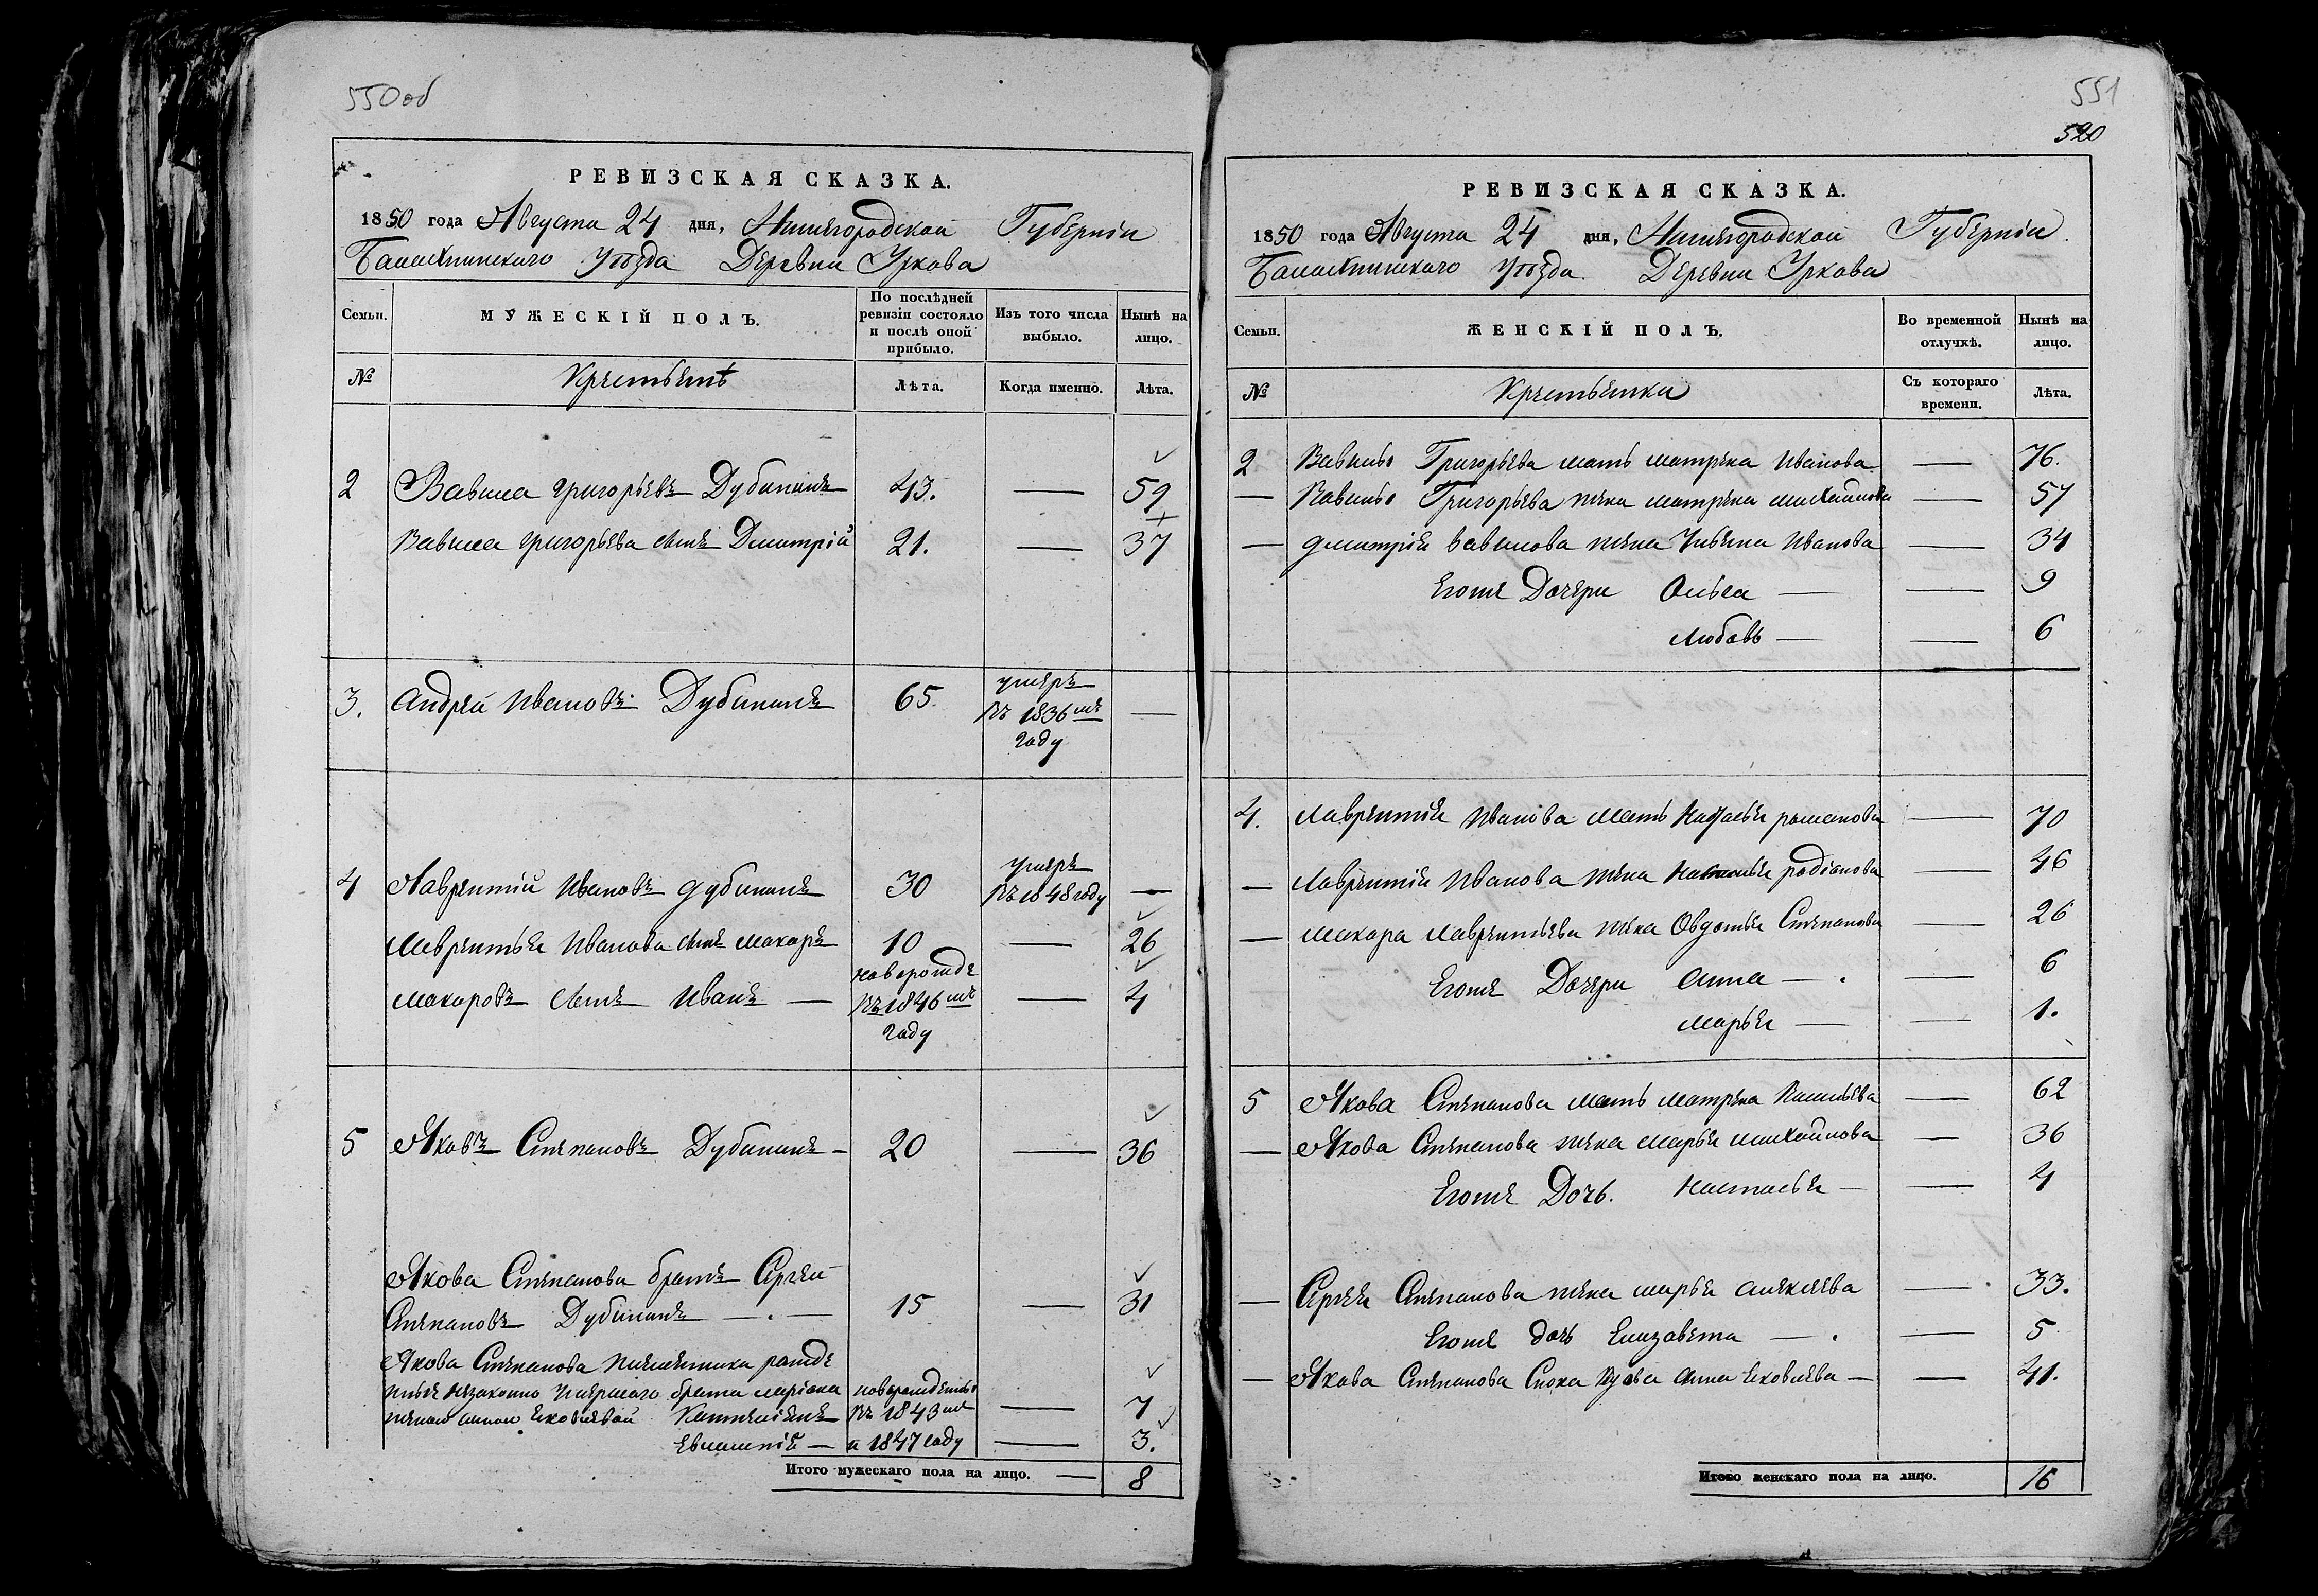 550 об
РЕВИЗСКАЯ СКАЗКА.
1850 года Августа 24 дня, Нижегородской Губерніи
Балахнинскаго Уѣзда Деревни Уркова
Семьи.
МУЖЕСКІЙ ПОЛЪ.
По послѣдней ревизіи состояло и послѣ оной прибыло.
Изъ того числа выбыло.
Нынѣ на лицо.
№
Крестьянъ
Лѣта.
Когда именно.
Лѣта.
2 Вавила Григорьевъ Дубининъ 43. — 59
Вавила Григорьева сынъ Дмитрій 21. — 37
3. Андрей Ивановъ Дубининъ 65. умеръ въ 1836мъ году —
4 Лаврентий Ивановъ Дубининъ 30 умеръ въ 1848 году —
Лаврентья Иванова сынъ Макаръ 10 — 26
Макаровъ сынъ Иванъ — новорожде въ 1846мъ году — 4
5 Яковъ Степановъ Дубининъ — 20 — 36
Якова Степанова братъ Сергей
Степановъ Дубининъ — 15 — 31
Якова Степанова племянника рожде
нные незаконно умершаго брата
женою Анной Яковлевой новорожденны въ 1843мъ — 7
Евлампій — и 1847 году — 3.
Итого мужескаго пола на лицо. — 8
551
520
РЕВИЗСКАЯ СКАЗКА.
1850 года Августа 24 дня, Нижегородской Губерніи
Балахнинскаго Уѣзда Деревни Уркова
Семьи.
ЖЕНСКІЙ ПОЛЪ.
Во временной отлучкѣ.
Нынѣ на лицо.
№
Крестьянки
Съ котораго времени.
Лѣта.
2 Вавилы Григорьева мать Матрена Иванова — 76.
— Вавилы Григорьева жена Матрена Михайлова — 57
— Дмитрія Вавилова жена Ульяна Иванова — 34
Егоже Дочери Ольга — — 9
Любовь — — 6
4. Лаврентія Иванова Мать Наталья Романова — 70
— Лаврентія Иванова жена Наталья Родіонова — 46
— Макара Лаврентьева жена Овдотья Степанова — 26
Егоже Дочери Анна — — 6
Марья — — 1.
5 Якова Степанова мать Матрена Васильева — 62
— Якова Степанова жена Марья Михайлова — 36
Егоже Дочь. Настасья — — 4
— Сергея Степанова жена Марья Алексеева — 33.
Егоже дочь Елизавета — — 5
— Якова Степанова Сноха Вдова Анна Яковлева — — 41.
Итого женскаго пола на лицо. 16